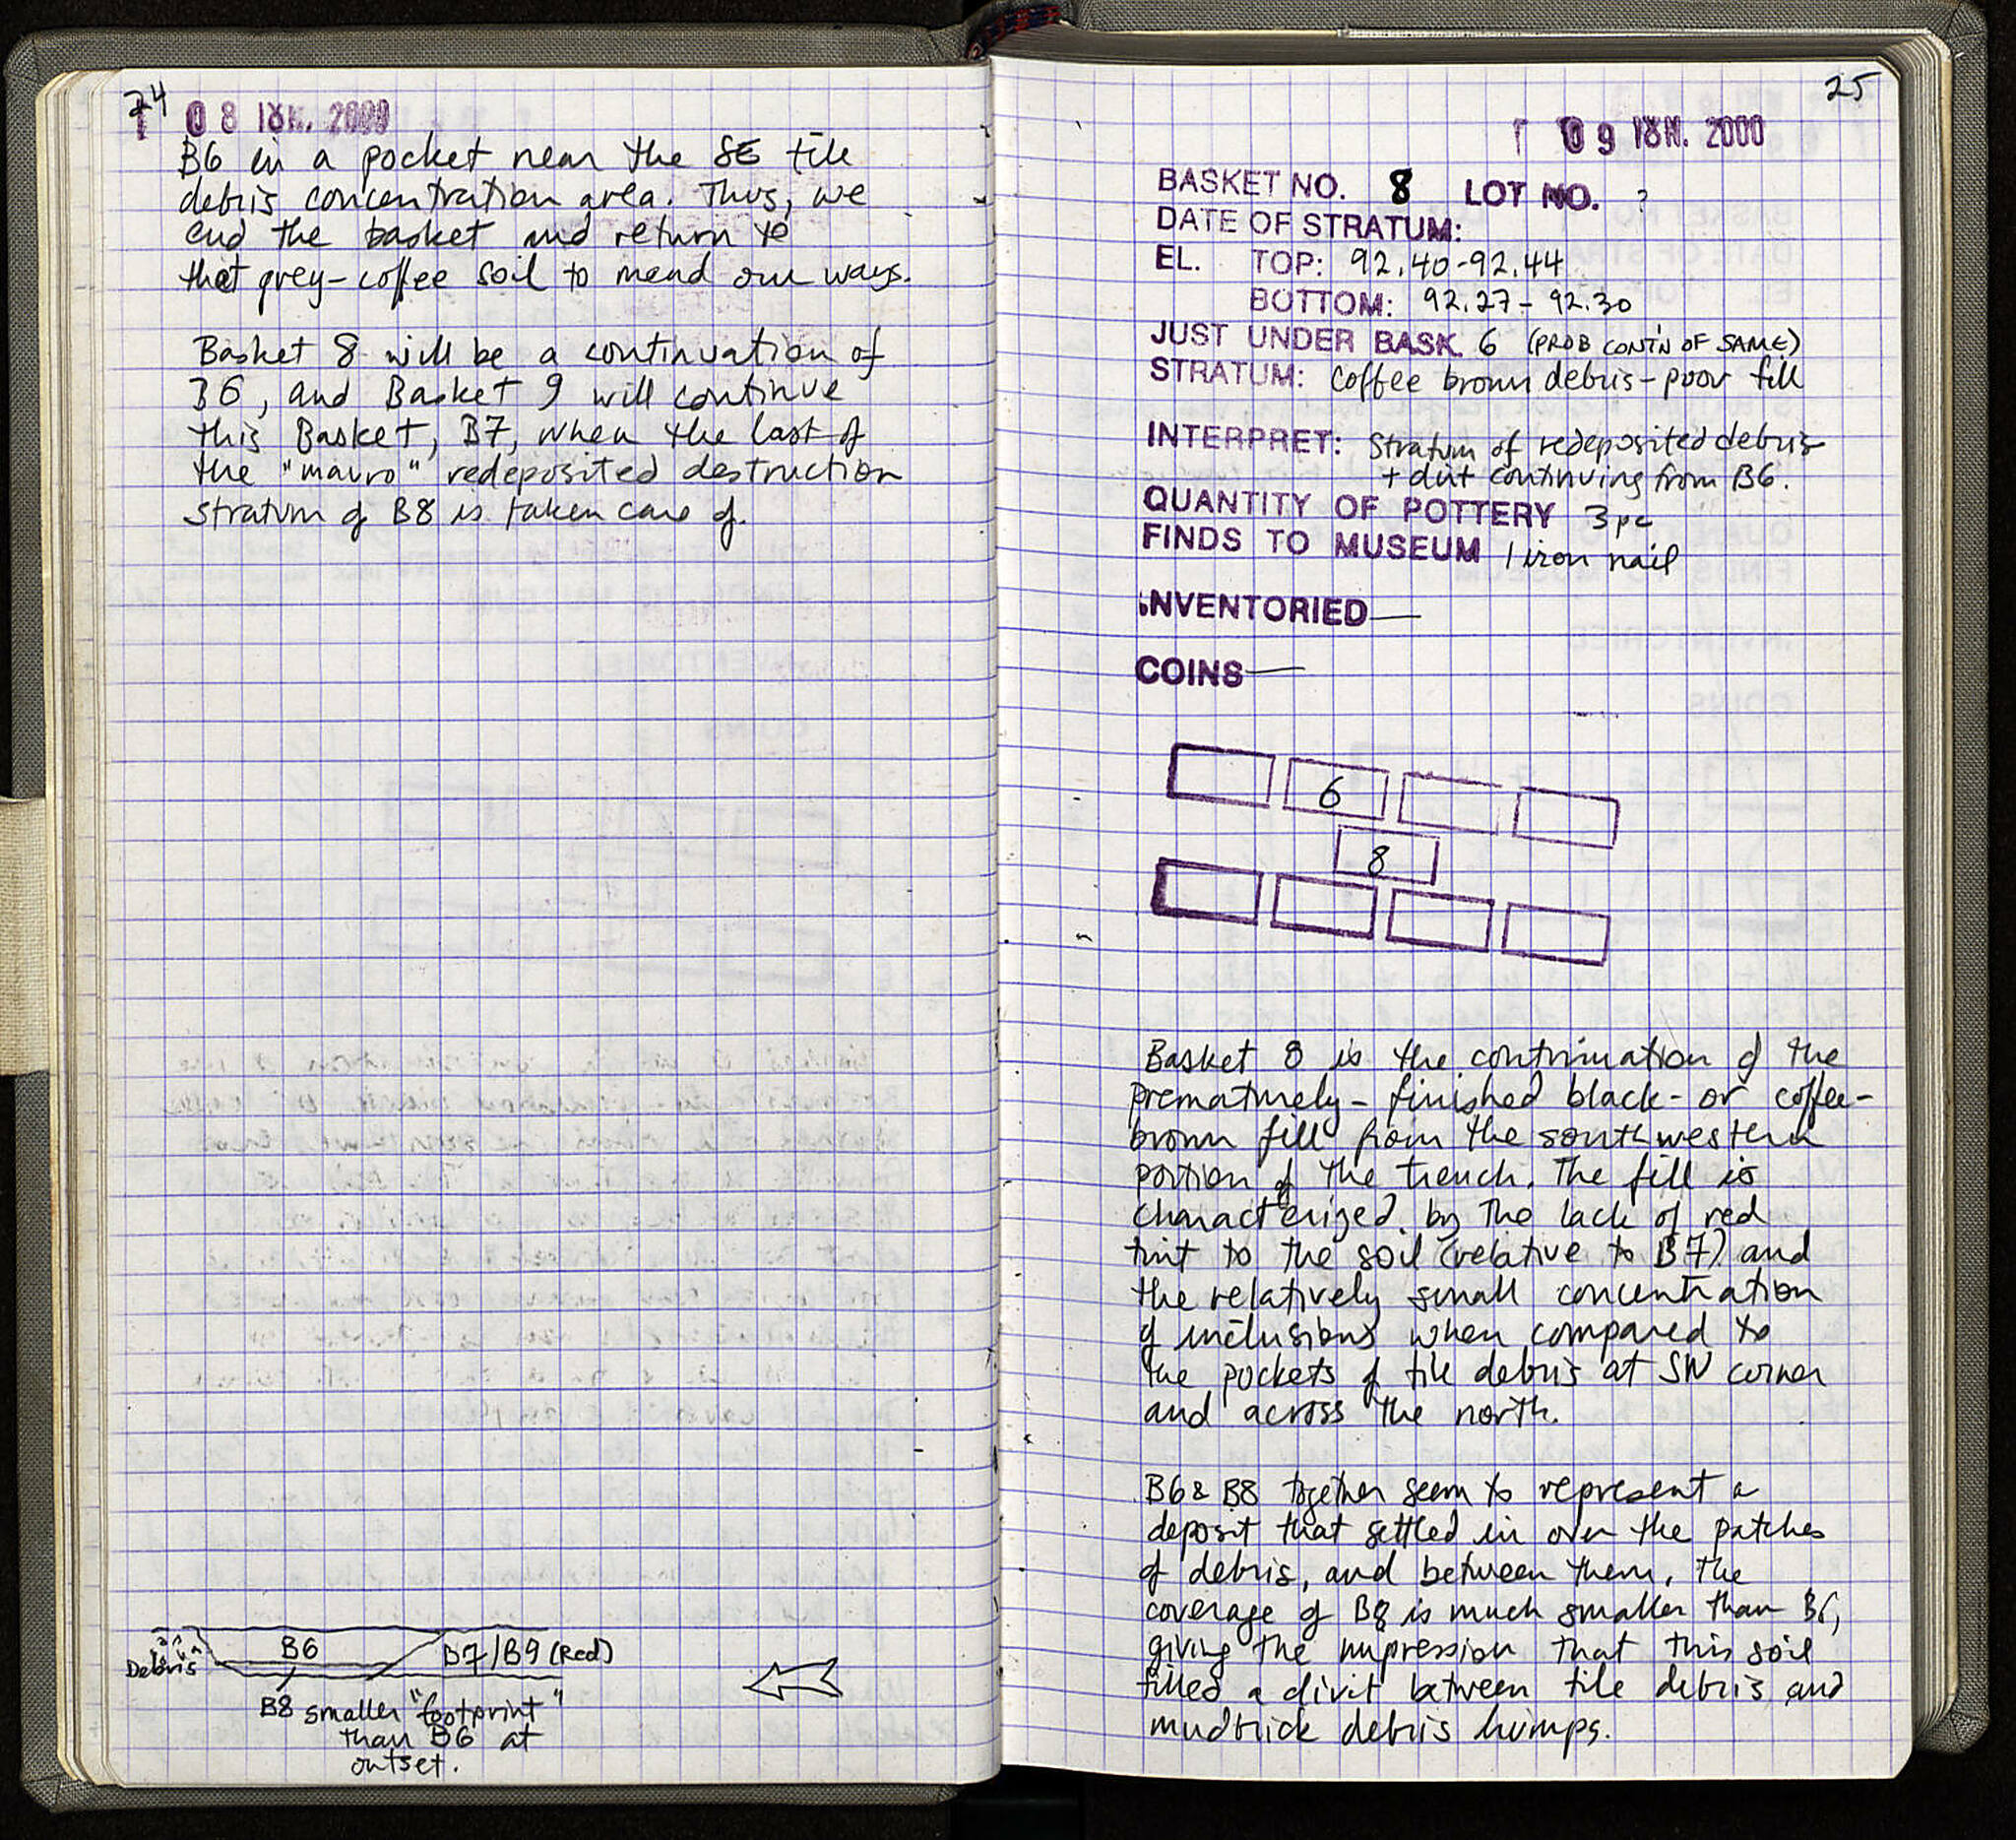 24
08 ΙΟΥΝ. 2000
B6 in a pocket near the SE tile
debris concentration area. Thus, we
end the basket and return to
that grey-coffee soil to mend our ways.
Basket 8 will be a continuation of
B6, and Basket 9 will continue
this Basket, B7, when the last of
the "macro" redeposited destruction
stratum of B8 is taken care of.
B6
B7/B9 (Red)
Debris
B8 smaller "footprint"
than B6 at
outset.
25
09 ΙΟΥΝ. 2000
BASKET NO. 8 LOT NO. ?
DATE OF STRATUM:
EL. TOP: 92.40-92.44
BOTTOM: 92.27-92.30
JUST UNDER BASK. 6 (PROB CONT'N OF SAME)
STRATUM: Coffee brown debris-poor fill
INTERPRET: Stratum of redeposited debris
+ dirt continuing from B6.
QUANTITY OF POTTERY 3pc
FINDS TO MUSEUM 1 iron nail
INVENTORIED —
COINS —
6
8
Basket 8 is the continuation of the
prematurely-finished black- or coffee-
brown fill from the southwestern
portion of the trench. The fill is
characterized by the lack of red
tint to the soil (relative to B7) and
the relatively small concentration
of inclusions when compared to
the pockets of tile debris at SW corner
and across the north.
B6 & B8 together seem to represent a
deposit that settled in over the patches
of debris, and between them. The
coverage of B8 is much smaller than B6,
giving the impression that this soil
filled a divit between tile debris and
mudbrick debris humps.